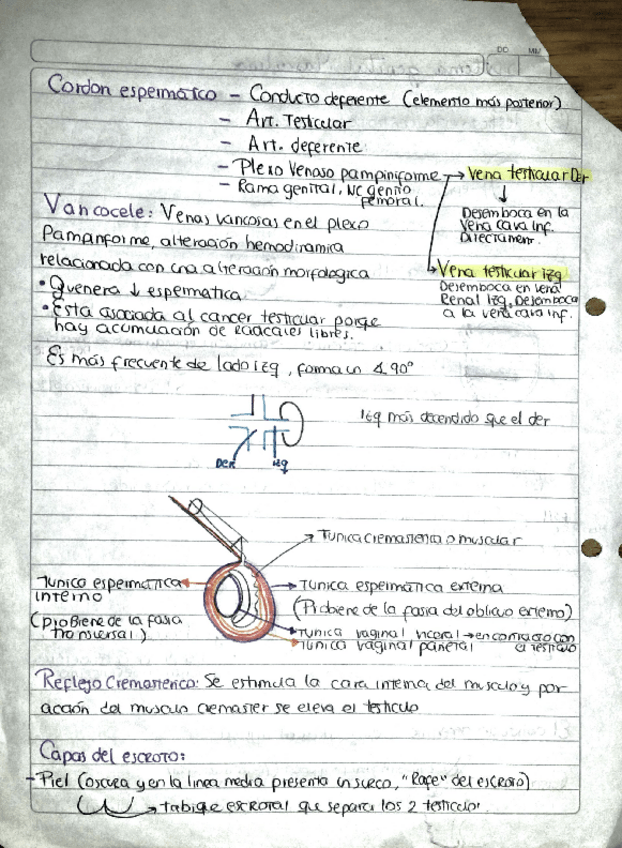 DO MM
Cordon espermático - Conducto deferente (elemento más posterior)
- Art. Testicular
- Art. deferente
- Plexo Venoso pampiniforme → Vena testicular Der
- Rama genital, NC genito femoral.
Desemboca en la
Vena cava Inf.
Directament.
Varicocele: Venas varicosas en el plexo
Pampiniforme, alteración hemodinamica
relacionada con una alteración morfologica
→ Vena testicular izq
Desemboca en vena
Renal Izq, Desemboca
a la vena cava inf.
• Genera ↓ espermatica
• Esta asociada al cancer testicular porqe
hay acumulación de radicales libres.
Es más frecuente de lado izq, forma un ∡ 90°
Izq más decendido que el der
Der Izq
Tunica cremasterica o muscular
Tunica espermatica
interno
(proBiene de la fasia
transversal)
Tunica espermatica externa
(ProBiene de la fasia del oblicuo externo)
Tunica vaginal viceral → en contacto con
el testiculo
Tunica vaginal parietal
Reflejo Cremasterico: Se estimula la cara interna del musculo y por
acción del musculo cremaster se eleva el testiculo
Capas del escroto:
- Piel (oscura y en la linea media presenta un surco, "Rafe" del escroto)
→ tabique escrotal que separa los 2 testiculos.